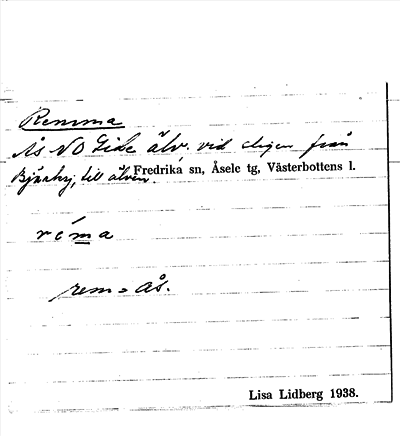 Remma
Ås NO Gide älv. vid stigen från
Fredrika sn, Åsele tg, Västerbottens l.
till älven.
réma
rem = ås.
Lisa Lidberg 1938.